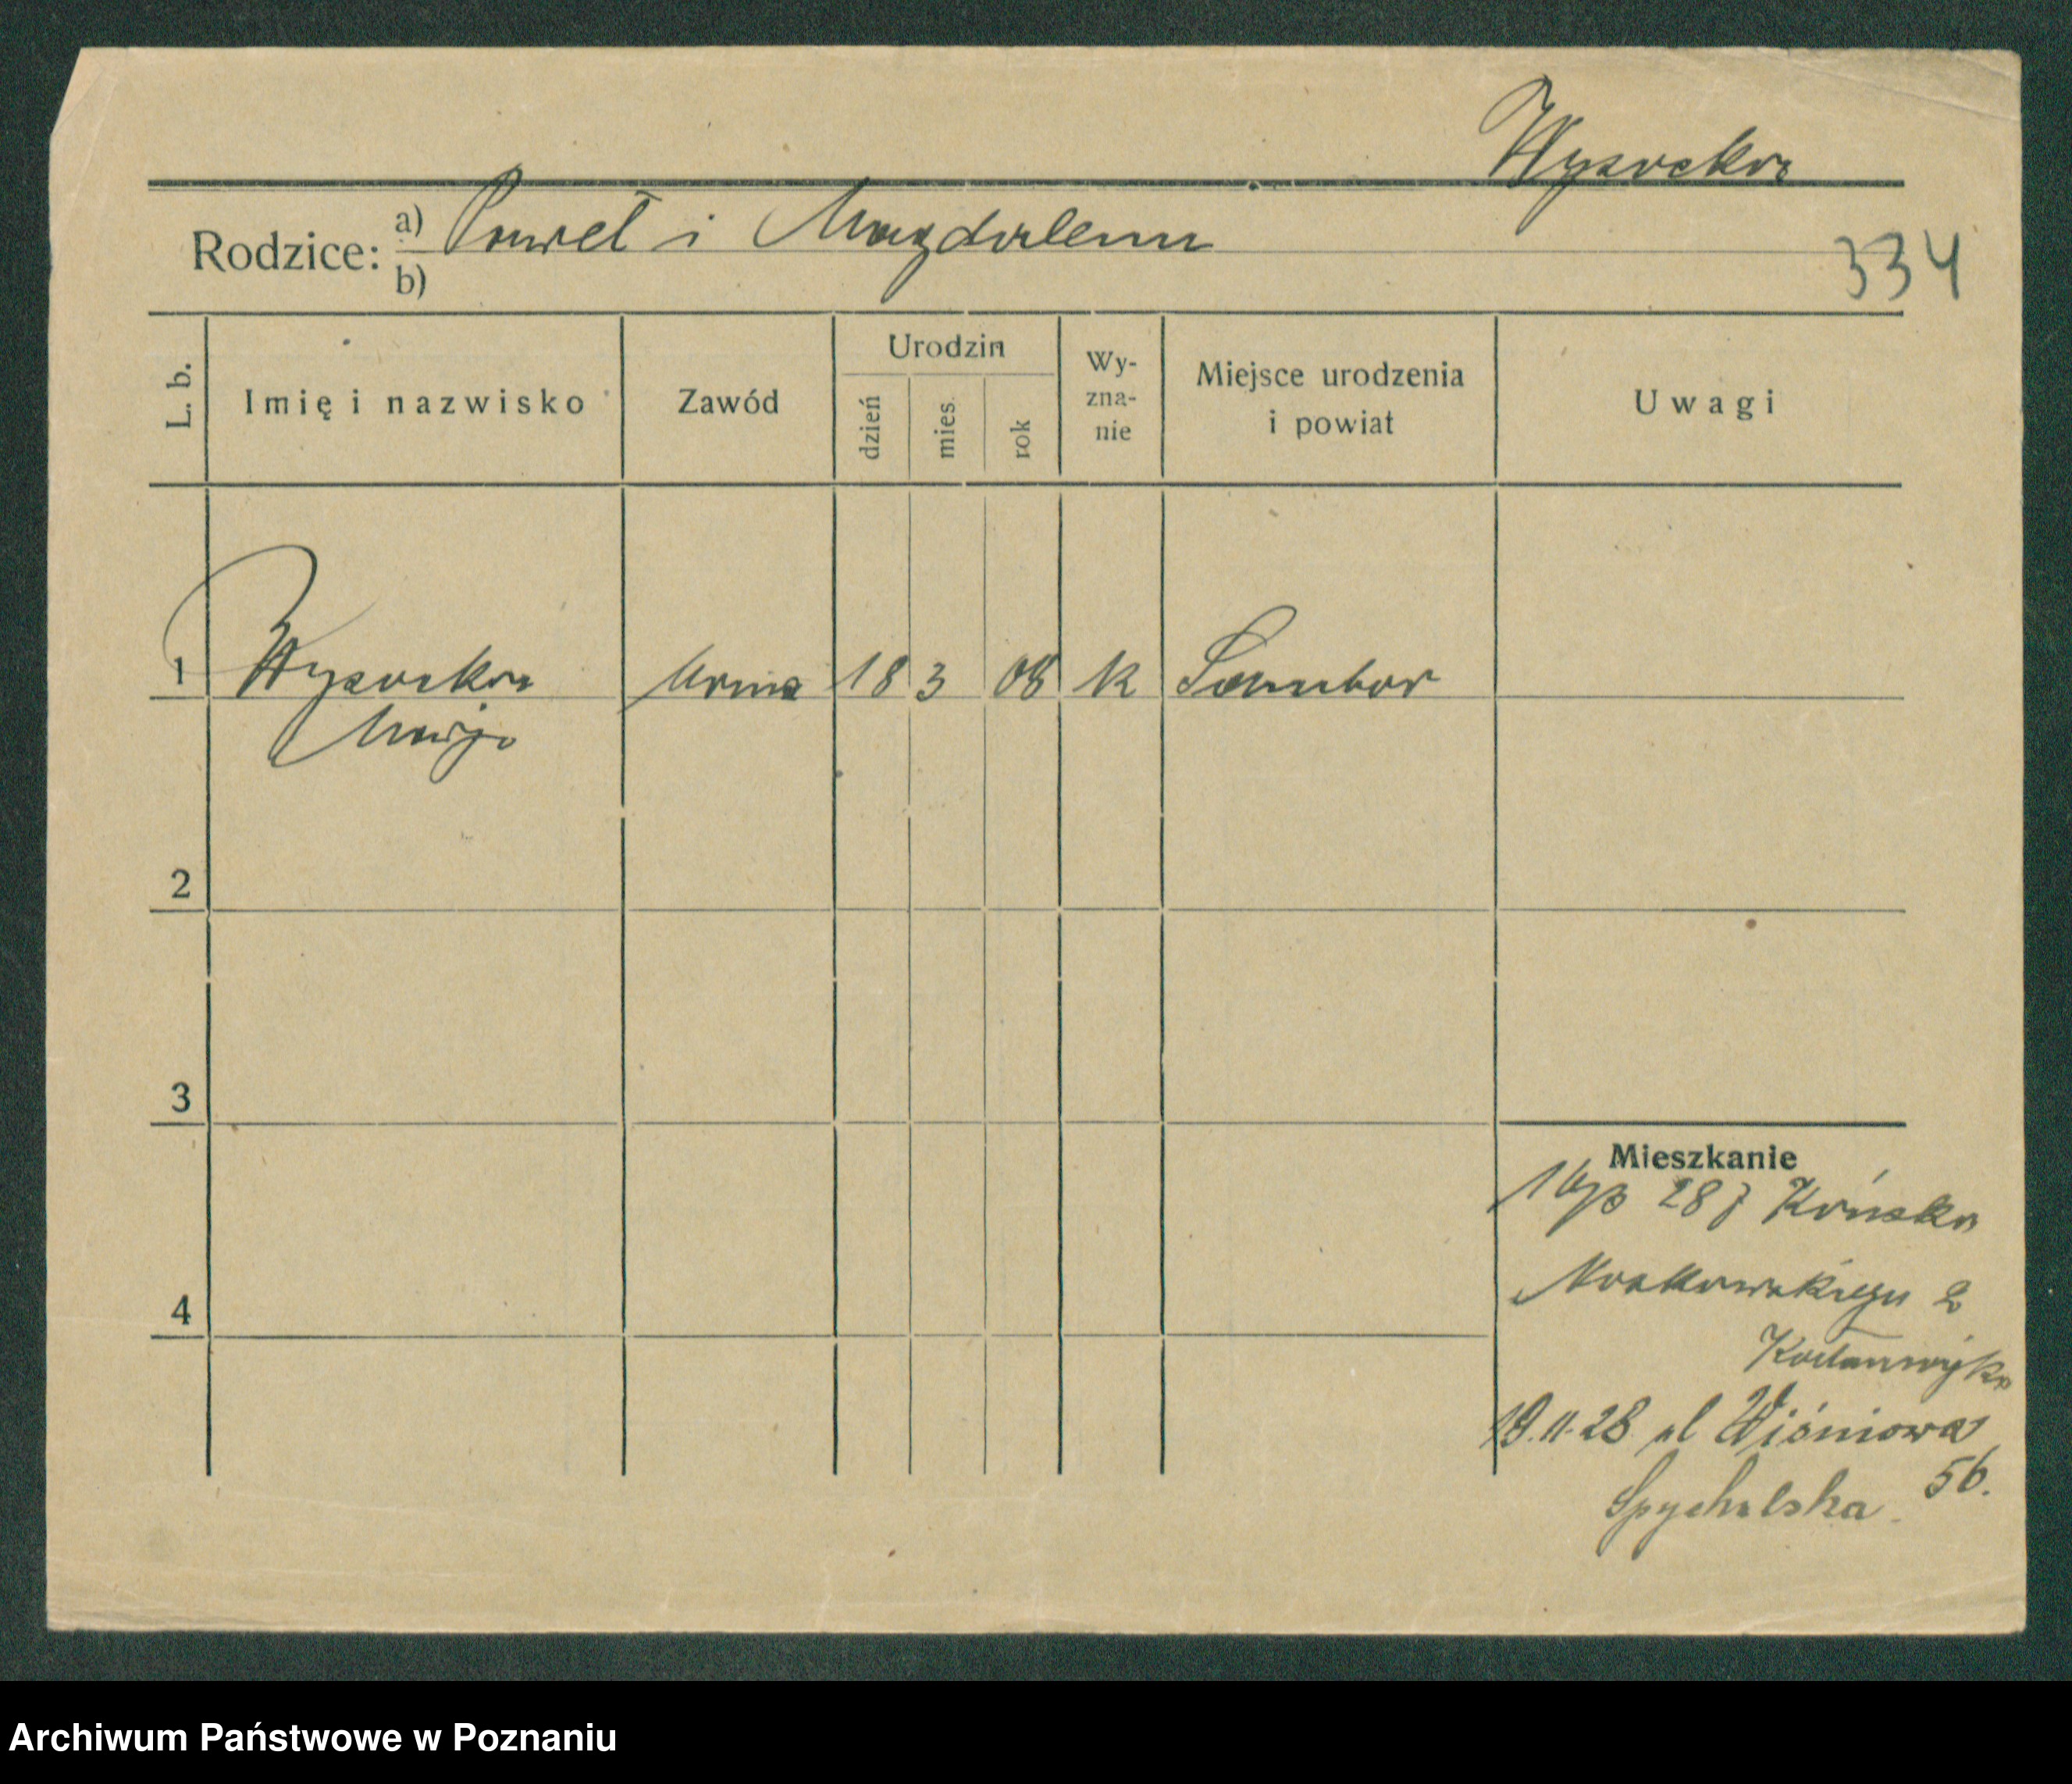 Wysocka
Rodzice: a) Paweł i Magdalena
b)
334
L. b.
Imię i nazwisko
Zawód
Urodzin
dzień
mies.
rok
Wy-
zna-
nie
Miejsce urodzenia
i powiat
Uwagi
1 Wysocka 18 3 08 k Sambor
Marja
2
3
4
Mieszkanie
28 Końska
2
19.11.28 ul Wiśniowa
56.
Spychalska
Archiwum Państwowe w Poznaniu